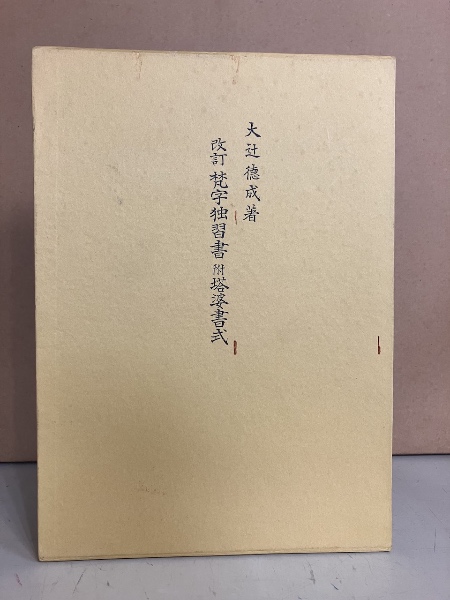 大辻德成著
改訂梵字独習書附塔婆書式